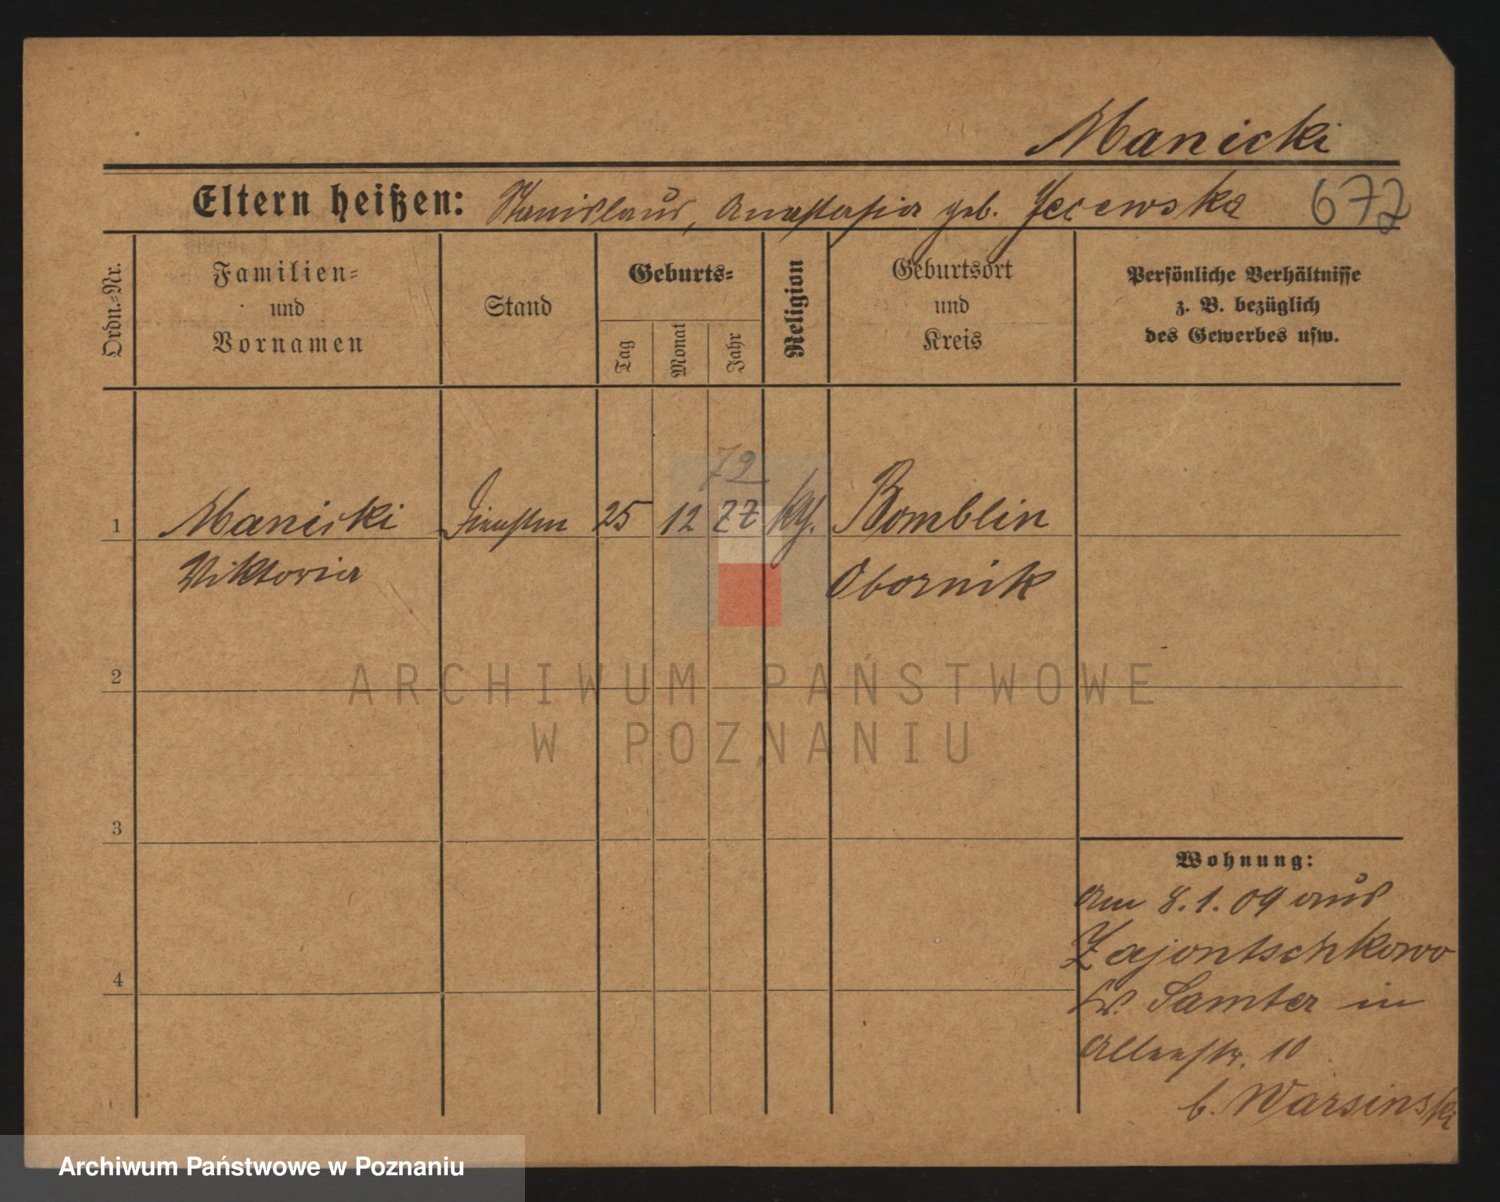 Manicki
Eltern heißen: Stanislaus, Anastasia geb. Jecewska 672
Ordn.-Nr.
Familien-
und
Vornamen
Stand
Geburts-
Tag
Monat
Jahr
Religion
Geburtsort
und
Kreis
Persönliche Verhältnisse
z. B. bezüglich
des Gewerbes usw.
72
1 Manicki 25 12 kth. Bomblin
Viktoria Obornik
2
3
4
Wohnung:
Am 8.1.09 aus
Zajontschkowo
Kr. Samter in
10
b. Warsinski
ARCHIWUM PAŃSTWOWE
W POZNANIU
Archiwum Państwowe w Poznaniu